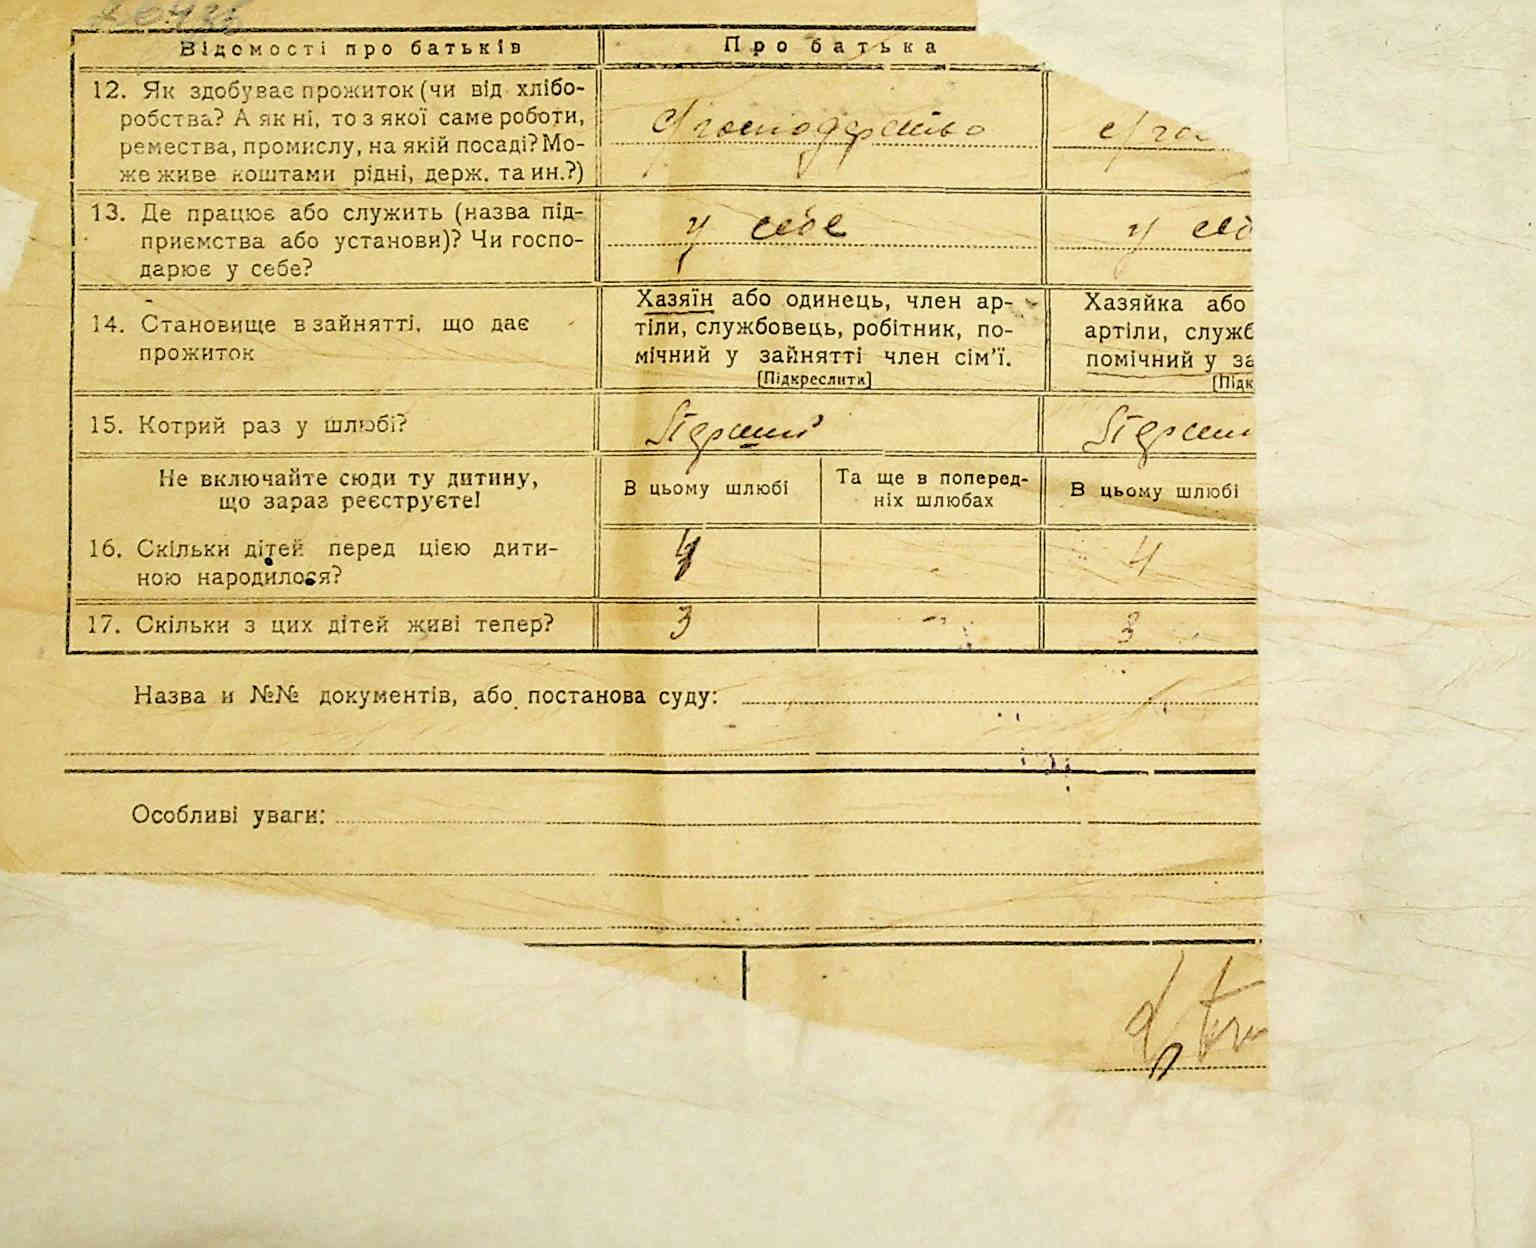 Відомості про батьків
Про батька
12. Як здобуває прожиток (чи від хлібо-
робства? А як ні, то з якої саме роботи,
ремества, промислу, на якій посаді? Мо-
же живе коштами рідні, держ. та ин.?)
господарство
13. Де працює або служить (назва під-
приємства або установи)? Чи госпо-
дарює у себе?
у себе
у себ
14. Становище в зайнятті, що дає
прожиток
Хазяїн або одинець, член ар-
тіли, службовець, робітник, по-
мічний у зайнятті член сім'ї.
(Підкреслити)
Хазяйка або
артіли, служб
помічний у за
(Підк
15. Котрий раз у шлюбі?
Перший
Перши
Не включайте сюди ту дитину,
що зараз реєструєте!
В цьому шлюбі
Та ще в поперед-
ніх шлюбах
В цьому шлюбі
16. Скільки дітей перед цією дити-
ною народилося?
4
-
4
17. Скільки з цих дітей живі тепер?
3
-
3
Назва и №№ документів, або постанова суду:
Особливі уваги: